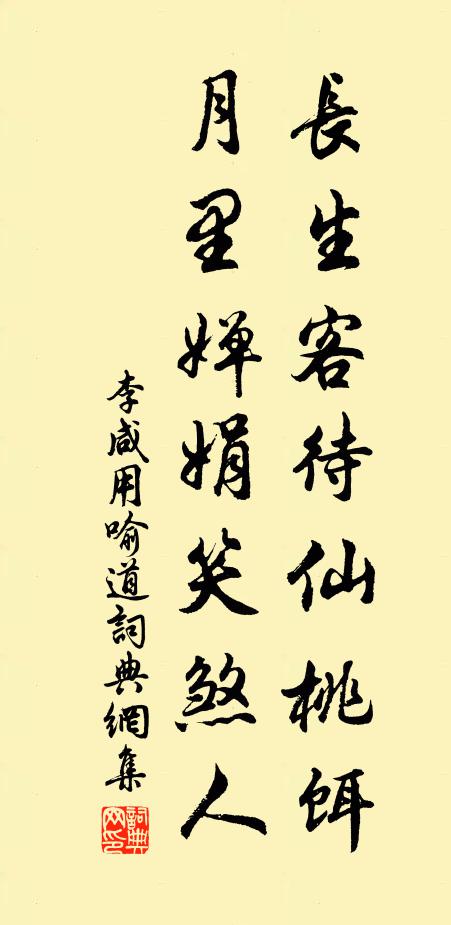 長生客待仙桃餌
月里嬋娟笑煞人
李咸用喻道詞典網集
詞典
网印